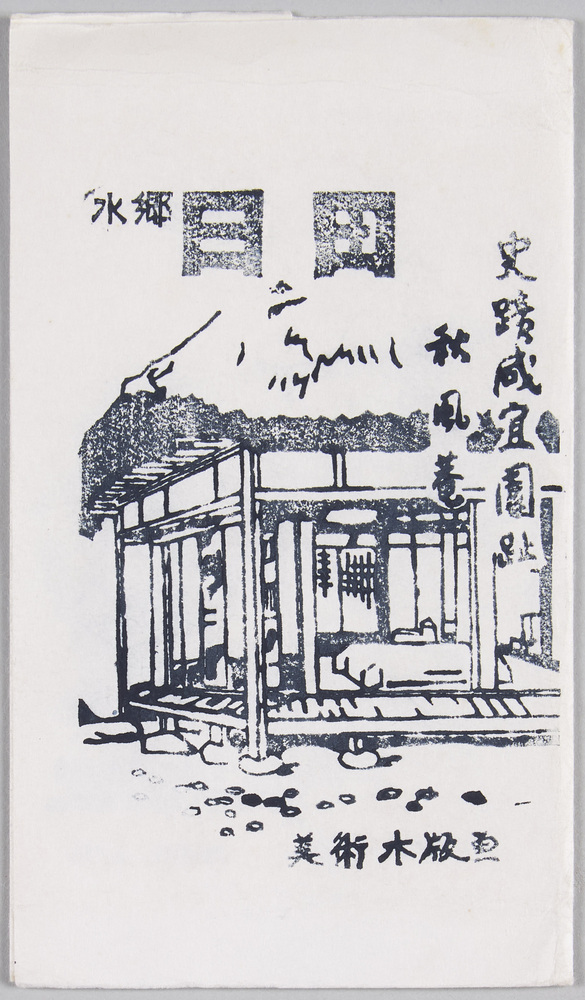 水郷 日田
史蹟咸宜園趾
秋風菴
美術木版画